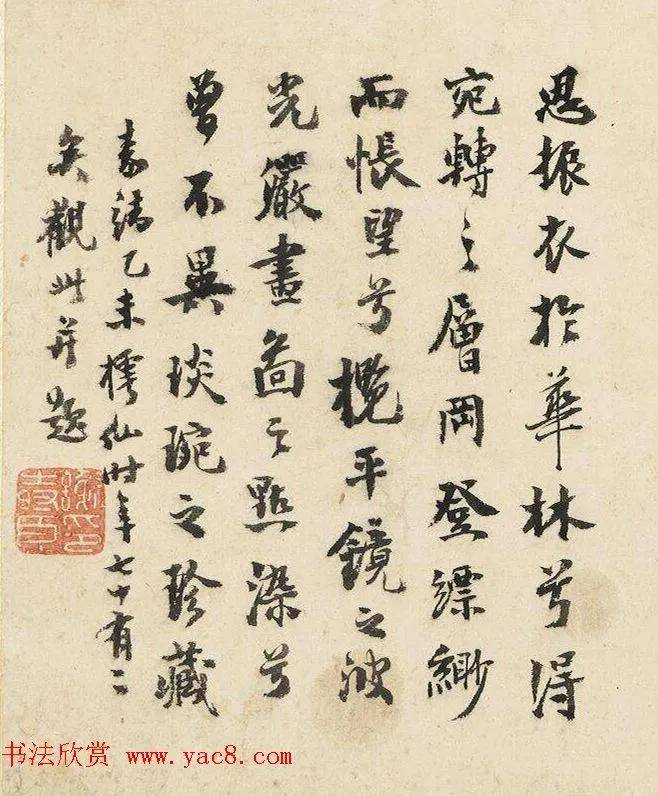 思振衣於華林兮得
宛轉之層岡登縹緲
而悵望兮攬平鏡之波
光嚴畫啚之點染兮
曾不異琰琬之珍藏
嘉靖乙未樗仙時年七十有二
矣觀此并題
謝時臣印
书法欣赏 www.yac8.com